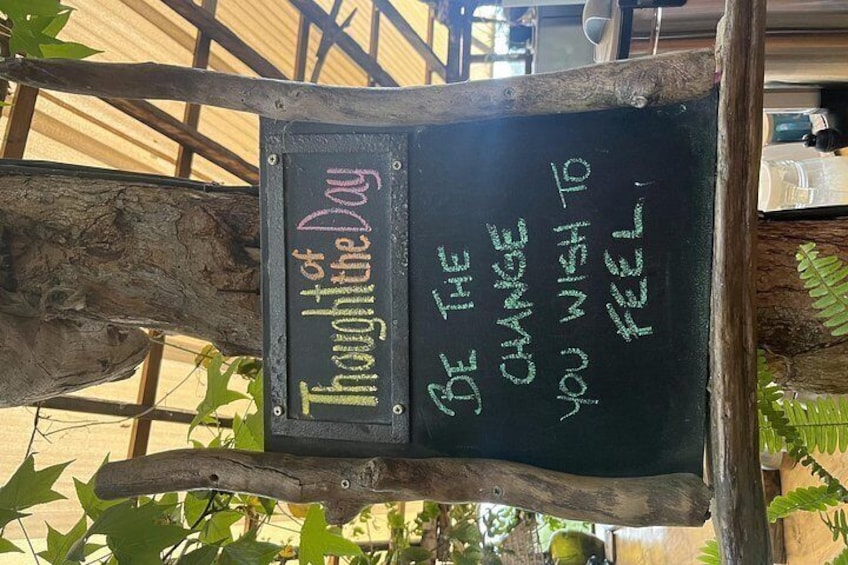 Thought of the Day
BE THE
CHANGE
YOU WISH TO
FEEL.